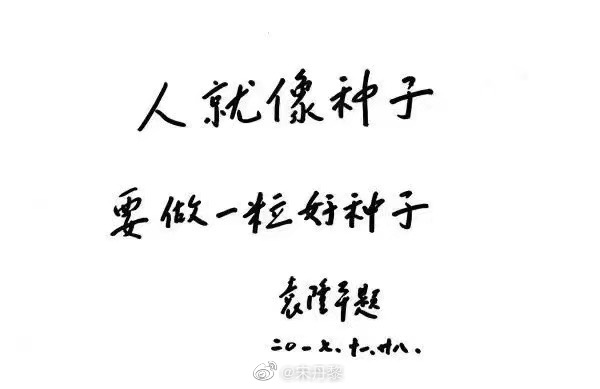 人就像种子
要做一粒好种子
袁隆平题
二〇一七、十一、廿八.
@宋丹黎